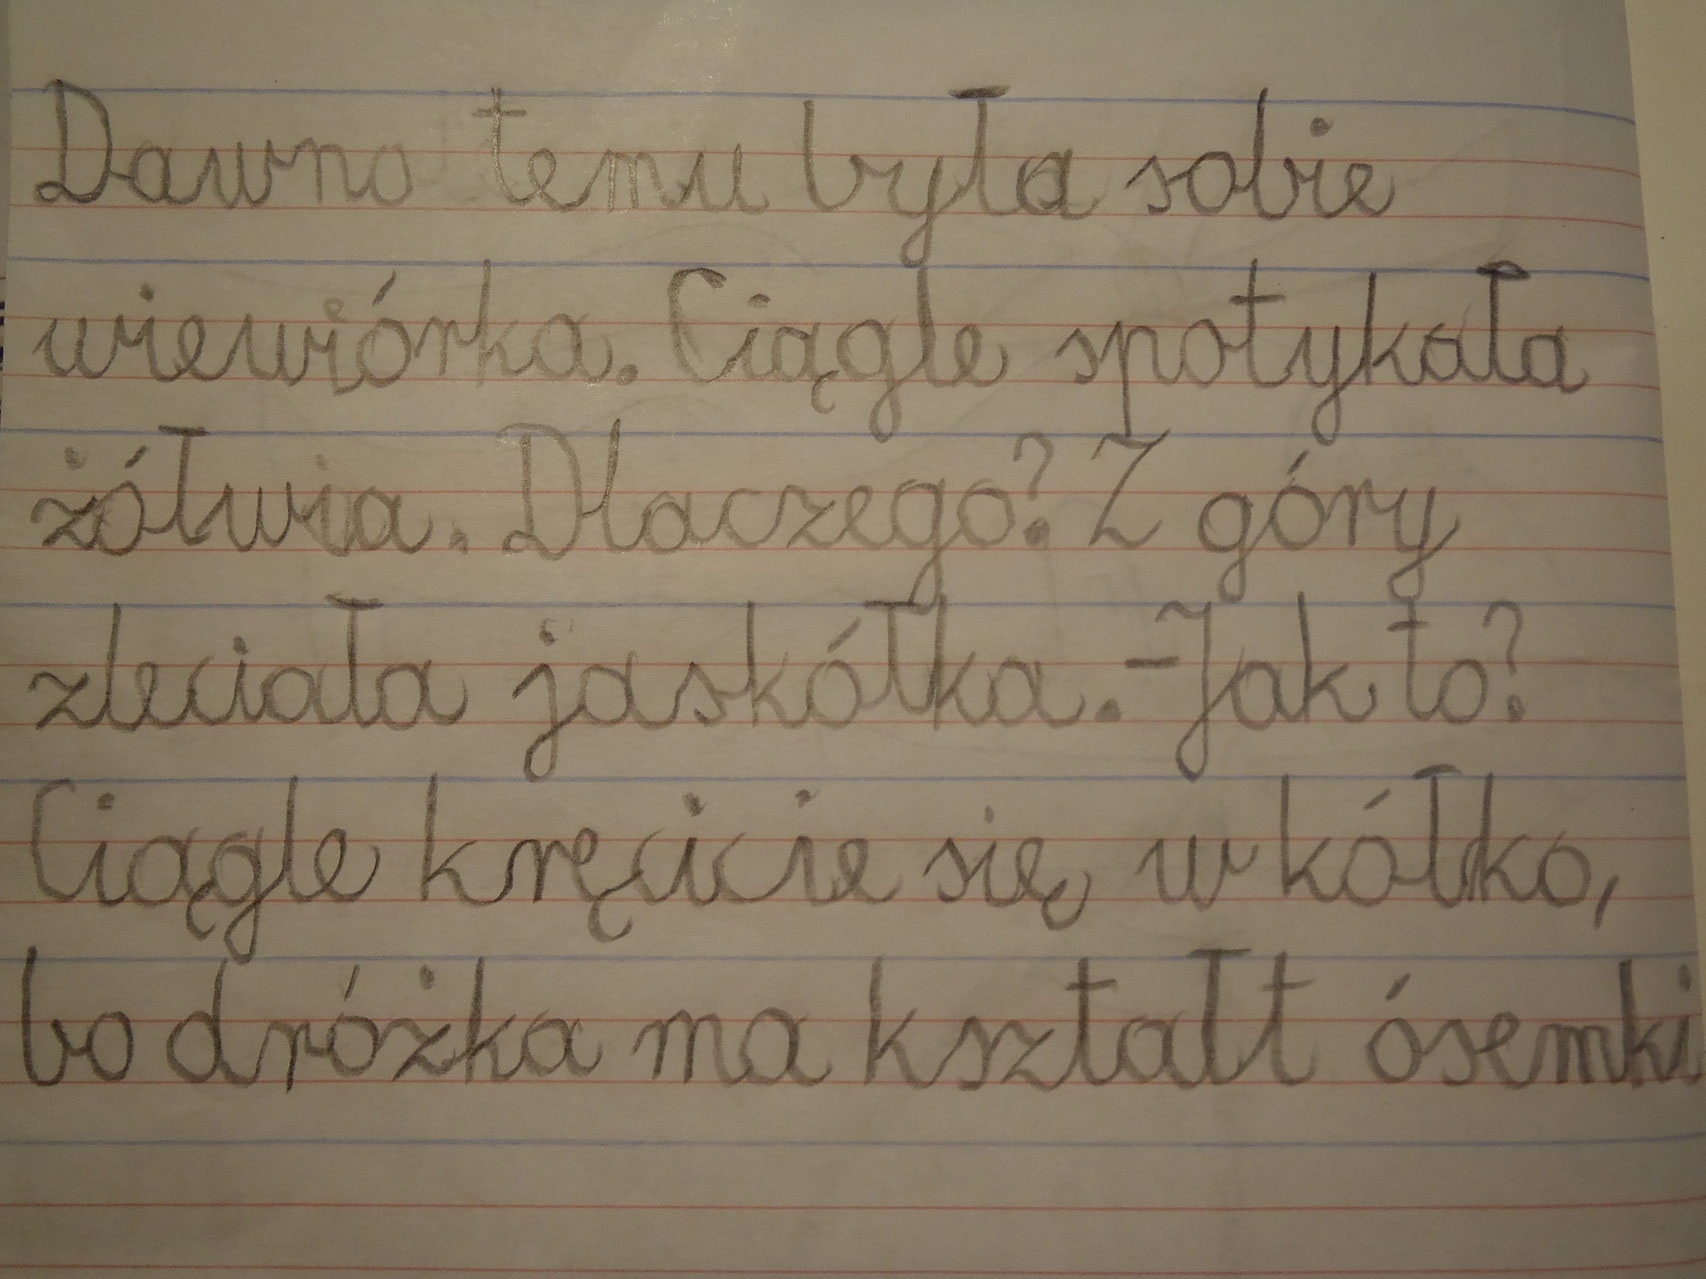 Dawno temu była sobie
wiewiórka. Ciągle spotykała
żółwia. Dlaczego? Z góry
zleciała jaskółka. -Jak to?
Ciągle kręcicie się w kółko,
bo dróżka ma kształt ósemki